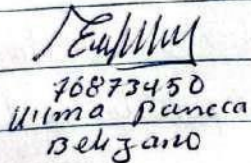 76873450
Wilma Pancca
Belizario